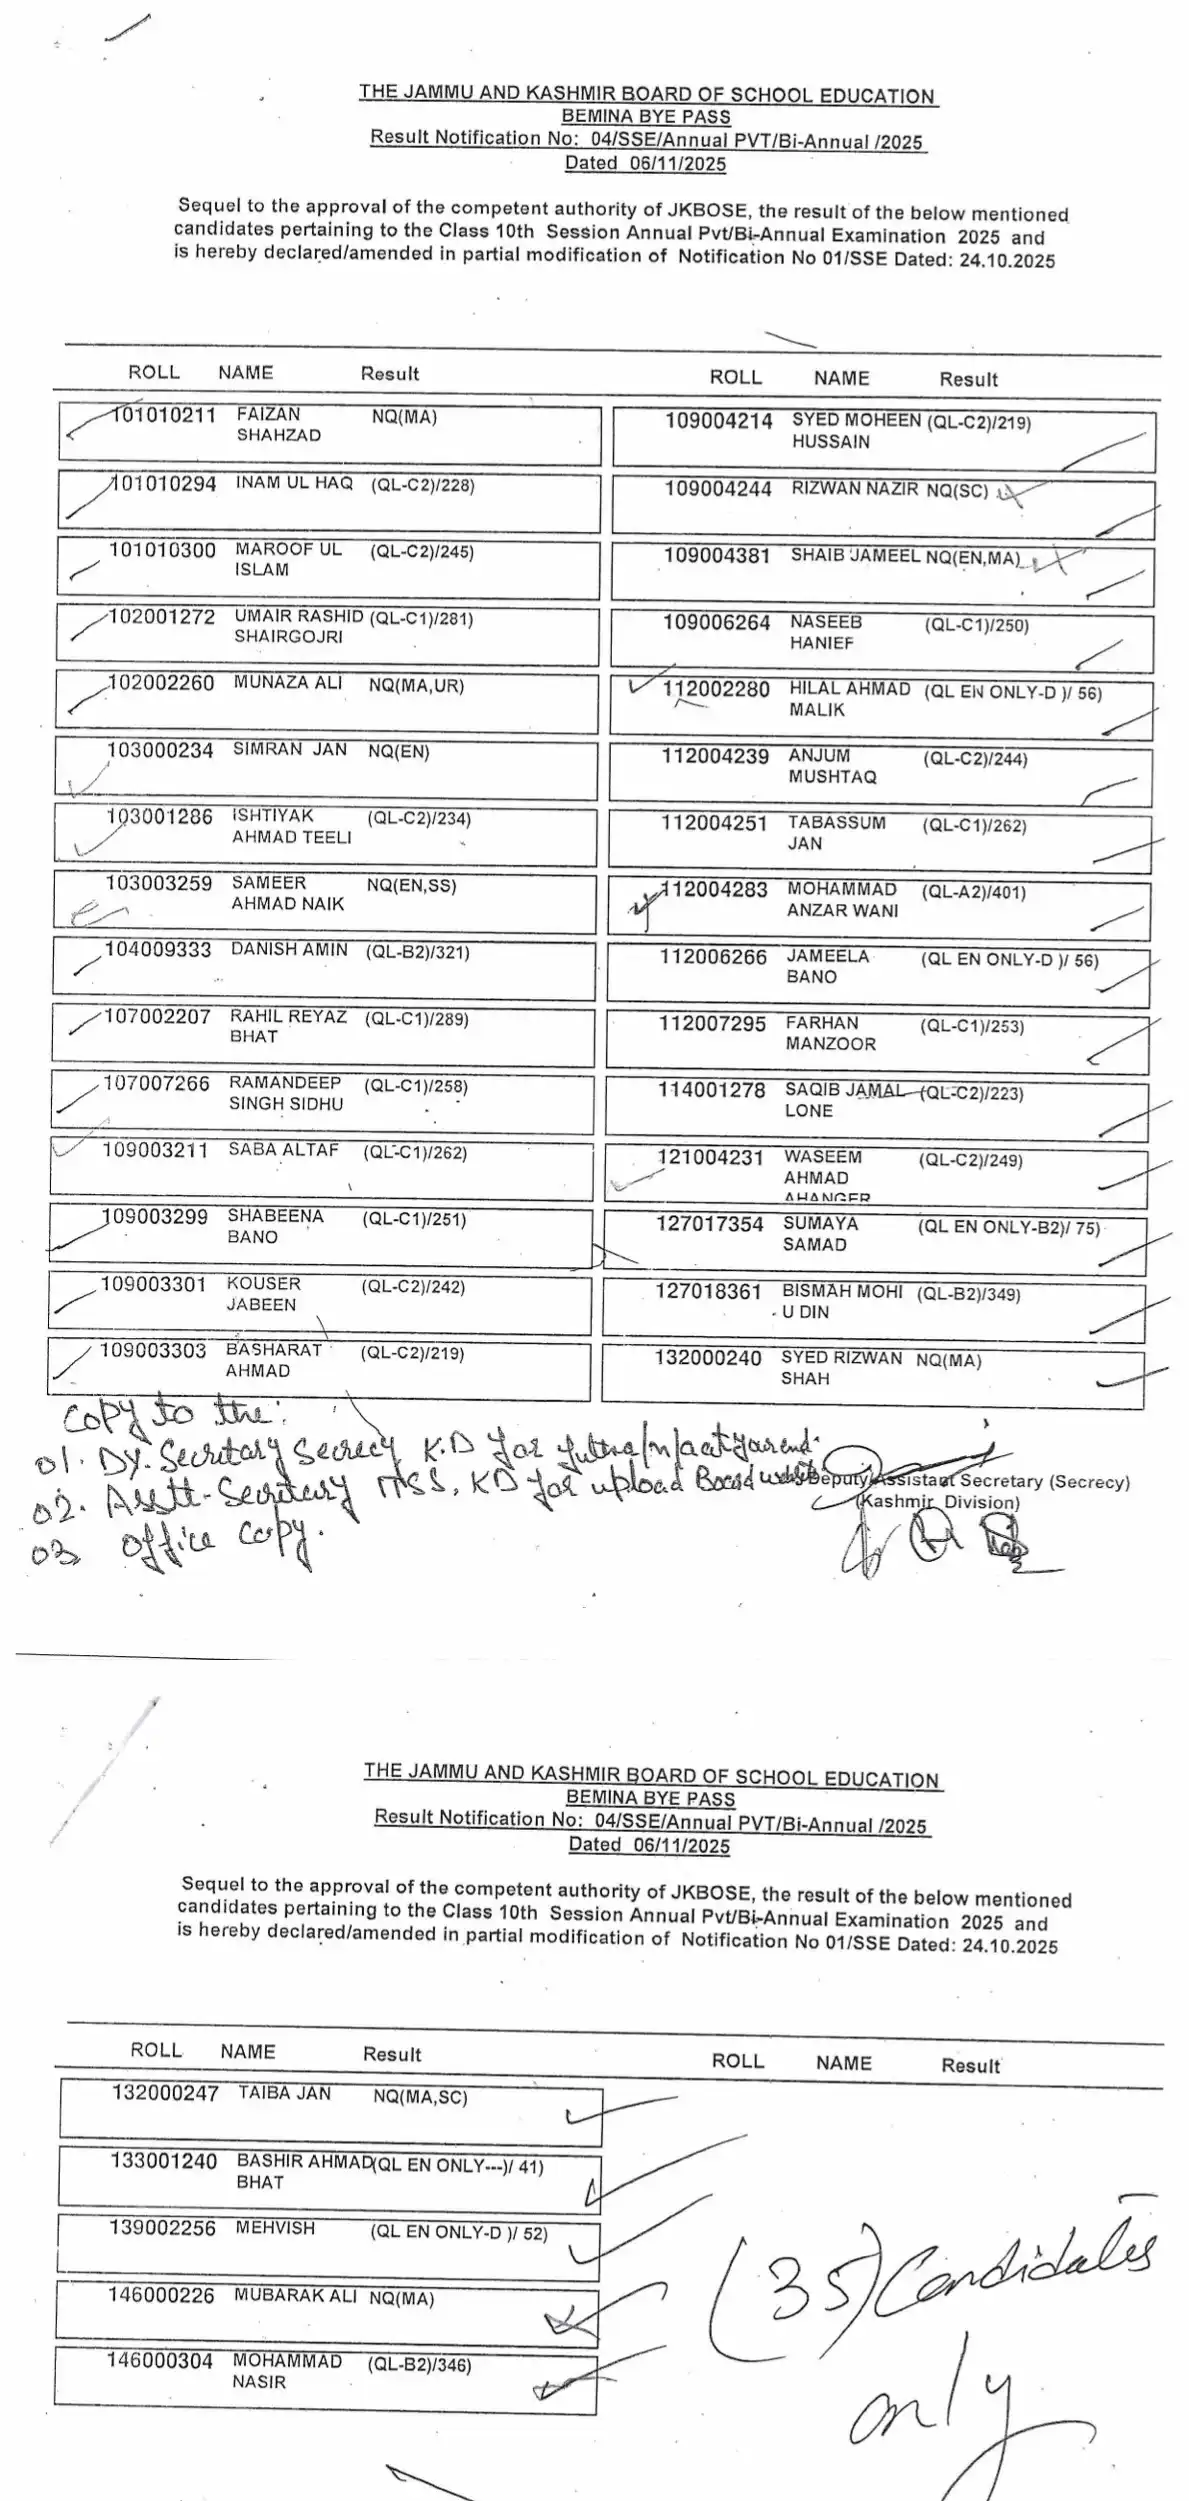 THE JAMMU AND KASHMIR BOARD OF SCHOOL EDUCATION
BEMINA BYE PASS
Result Notification No: 04/SSE/Annual PVT/Bi-Annual /2025
Dated 06/11/2025
Sequel to the approval of the competent authority of JKBOSE, the result of the below mentioned
candidates pertaining to the Class 10th Session Annual Pvt/Bi-Annual Examination 2025 and
is hereby declared/amended in partial modification of Notification No 01/SSE Dated: 24.10.2025
ROLL NAME Result
101010211 FAIZAN NQ(MA)
SHAHZAD
101010294 INAM UL HAQ (QL-C2)/228)
101010300 MAROOF UL (QL-C2)/245)
ISLAM
102001272 UMAIR RASHID (QL-C1)/281)
SHAIRGOJRI
102002260 MUNAZA ALI NQ(MA,UR)
103000234 SIMRAN JAN NQ(EN)
103001286 ISHTIYAK (QL-C2)/234)
AHMAD TEELI
103003259 SAMEER NQ(EN,SS)
AHMAD NAIK
104009333 DANISH AMIN (QL-B2)/321)
107002207 RAHIL REYAZ (QL-C1)/289)
BHAT
107007266 RAMANDEEP (QL-C1)/258)
SINGH SIDHU
109003211 SABA ALTAF (QL-C1)/262)
109003299 SHABEENA (QL-C1)/251)
BANO
109003301 KOUSER (QL-C2)/242)
JABEEN
109003303 BASHARAT (QL-C2)/219)
AHMAD
ROLL NAME Result
109004214 SYED MOHEEN (QL-C2)/219)
HUSSAIN
109004244 RIZWAN NAZIR NQ(SC)
109004381 SHAIB JAMEEL NQ(EN,MA)
109006264 NASEEB (QL-C1)/250)
HANIEF
112002280 HILAL AHMAD (QL EN ONLY-D )/ 56)
MALIK
112004239 ANJUM (QL-C2)/244)
MUSHTAQ
112004251 TABASSUM (QL-C1)/262)
JAN
112004283 MOHAMMAD (QL-A2)/401)
ANZAR WANI
112006266 JAMEELA (QL EN ONLY-D )/ 56)
BANO
112007295 FARHAN (QL-C1)/253)
MANZOOR
114001278 SAQIB JAMAL (QL-C2)/223)
LONE
121004231 WASEEM (QL-C2)/249)
AHMAD
AHANGER
127017354 SUMAYA (QL EN ONLY-B2)/ 75)
SAMAD
127018361 BISMAH MOHI (QL-B2)/349)
U DIN
132000240 SYED RIZWAN NQ(MA)
SHAH
Copy to the:
01. Dy. Secretary Secrecy K.D for your end.
02. Asstt. Secretary K.D for upload Board website
03 office copy.
Deputy/Assistant Secretary (Secrecy)
(Kashmir Division)
THE JAMMU AND KASHMIR BOARD OF SCHOOL EDUCATION
BEMINA BYE PASS
Result Notification No: 04/SSE/Annual PVT/Bi-Annual /2025
Dated 06/11/2025
Sequel to the approval of the competent authority of JKBOSE, the result of the below mentioned
candidates pertaining to the Class 10th Session Annual Pvt/Bi-Annual Examination 2025 and
is hereby declared/amended in partial modification of Notification No 01/SSE Dated: 24.10.2025
ROLL NAME Result ROLL NAME Result
132000247 TAIBA JAN NQ(MA,SC)
133001240 BASHIR AHMAD (QL EN ONLY---)/ 41)
BHAT
139002256 MEHVISH (QL EN ONLY-D )/ 52)
146000226 MUBARAK ALI NQ(MA)
146000304 MOHAMMAD (QL-B2)/346)
NASIR
(35) Candidates
only